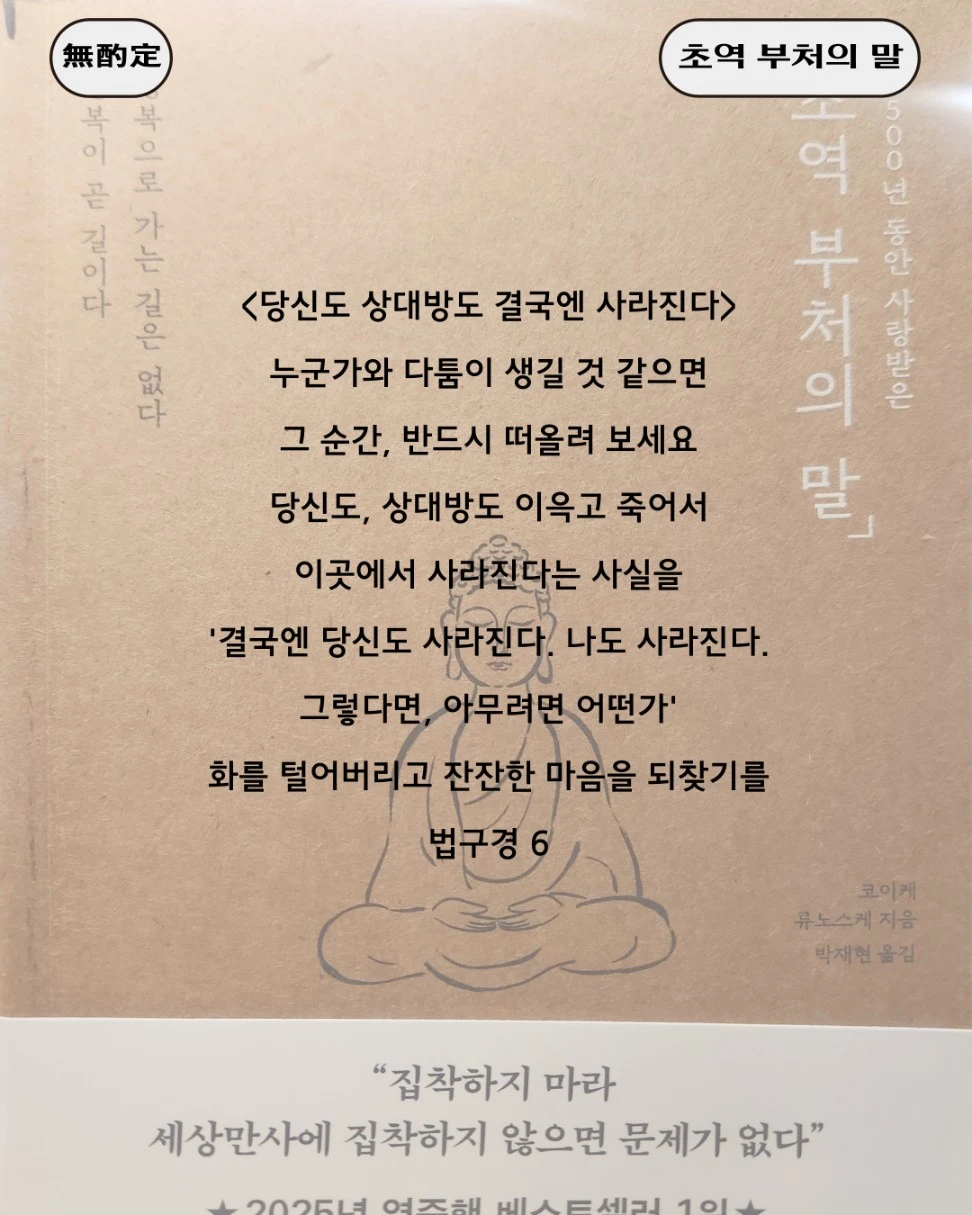 無酌定
초역 부처의 말
500년 동안 사랑받은
초역 부처의 말」
복으로 가는 길은 없다
복이 곧 길이다
<당신도 상대방도 결국엔 사라진다>
누군가와 다툼이 생길 것 같으면
그 순간, 반드시 떠올려 보세요
당신도, 상대방도 이윽고 죽어서
이곳에서 사라진다는 사실을
'결국엔 당신도 사라진다. 나도 사라진다.
그렇다면, 아무려면 어떤가'
화를 털어버리고 잔잔한 마음을 되찾기를
법구경 6
코이케
류노스케 지음
박재현 옮김
“집착하지 마라
세상만사에 집착하지 않으면 문제가 없다”
★2025년 역주행 베스트셀러 1위★